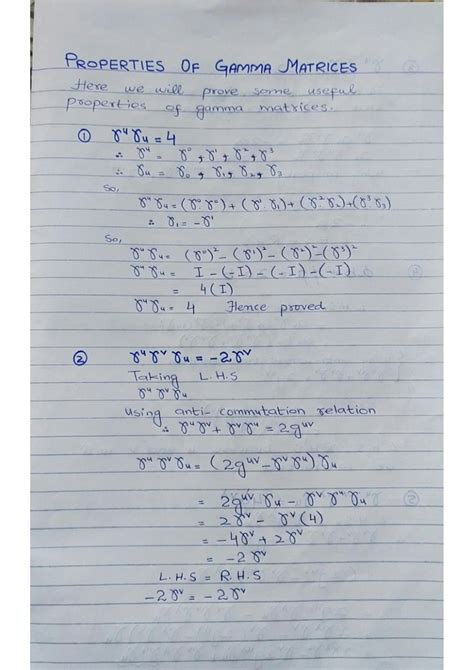 PROPERTIES OF GAMMA MATRICES
Here we will prove some useful
properties of gamma matrices.
① γᵘγᵤ = 4
∴ γᵘ = γ⁰, γ¹, γ², γ³
∴ γᵤ = γ₀, γ₁, γ₂, γ₃
So,
γᵘγᵤ = (γ⁰γ₀) + (γ¹γ₁) + (γ²γ₂) + (γ³γ₃)
∴ γ₁ = -γ¹
So,
γᵘγᵤ = (γ⁰)² - (γ¹)² - (γ²)² - (γ³)²
γᵘγᵤ = I - (-I) - (-I) - (-I)
= 4(I)
γᵘγᵤ = 4 Hence proved
② γᵘγᵛγᵤ = -2γᵛ
Taking L.H.S
γᵘγᵛγᵤ
using anti-commutation relation
∴ γᵘγᵛ + γᵛγᵘ = 2gᵘᵛ
γᵘγᵛγᵤ = (2gᵘᵛ - γᵛγᵘ)γᵤ
= 2gᵘᵛγᵤ - γᵛγᵘγᵤ
= 2γᵛ - γᵛ(4)
= -4γᵛ + 2γᵛ
= -2γᵛ
L.H.S = R.H.S
-2γᵛ = -2γᵛ